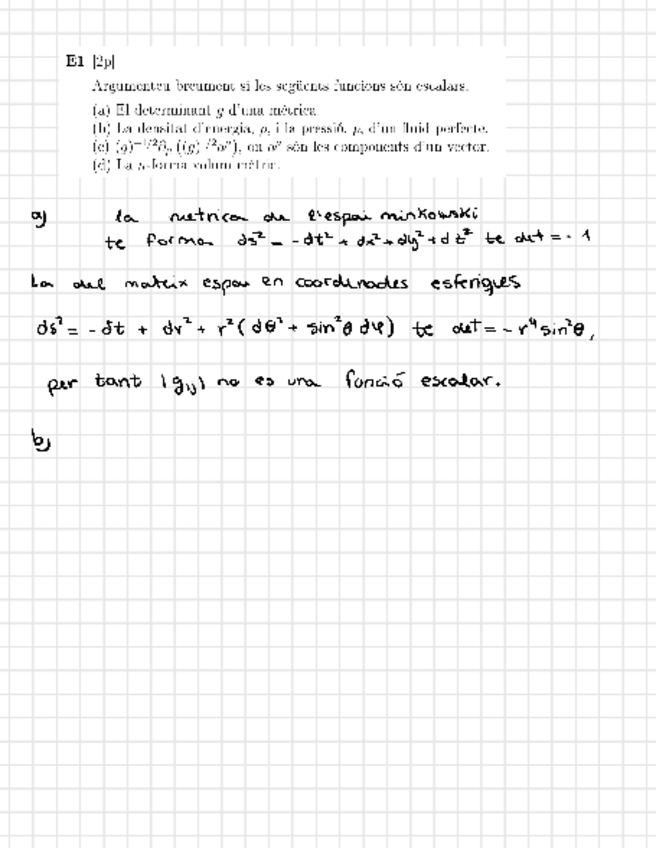 E1 [2p]
Argumenteu breument si les següents funcions són escalars.
(a) El determinant g d'una mètrica.
(b) La densitat d'energia, ρ, i la pressió, p, d'un fluid perfecte.
(c) (g)^{-1/2}∂_μ((g)^{1/2}α^μ), on α^μ són les components d'un vector.
(d) La n-forma volum mètric.
a) la metrica de l'espai minkowski
te forma ds² = -dt² + dx² + dy² + dz² te det = -1
La del mateix espai en coordenades esferiques
ds² = -dt + dr² + r²(dθ² + sin²θ dφ) te det = -r⁴ sin²θ,
per tant |g_ij| no es una funció escalar.
b)